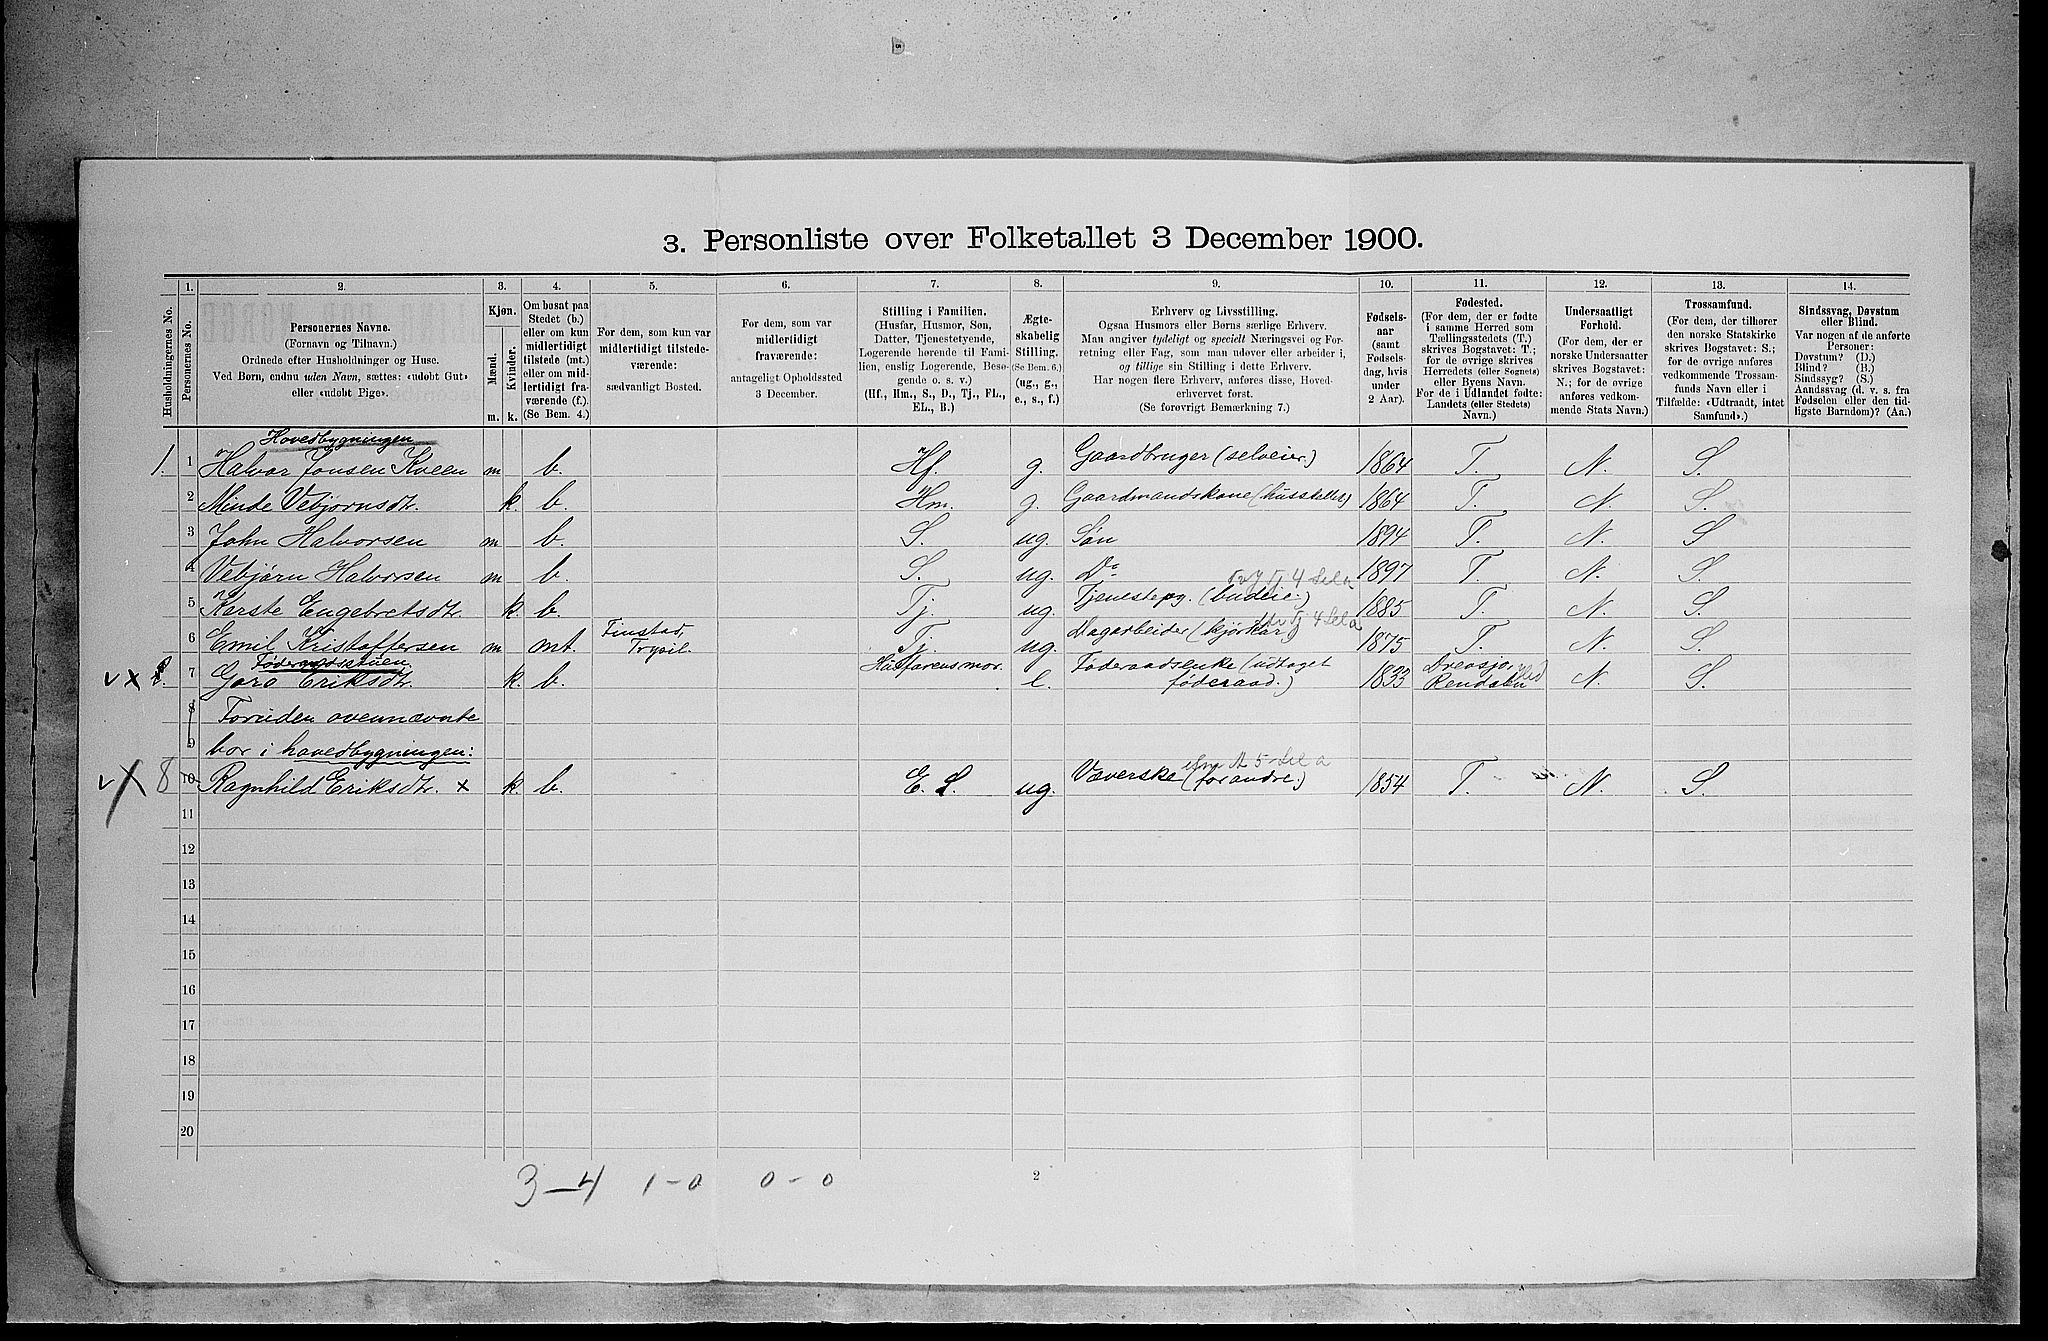 3. Personliste over Folketallet 3 December 1900.
Husholdningernes No.
1.
Personernes No.
2.
Personernes Navne.
(Fornavn og Tilnavn.)
Ordnede efter Husholdninger og Huse.
Ved Børn, endnu uden Navn, sættes: «udøbt Gut»
eller «udøbt Pige».
3.
Kjøn.
Mænd.
Kvinder.
m. k.
4.
Om bosat paa
Stedet (b.)
eller om kun
midlertidigt
tilstede (mt.)
eller om mid-
lertidigt fra-
værende (f.).
(Se Bem. 4.)
5.
For dem, som kun var
midlertidigt tilstede-
værende:
sædvanligt Bosted.
6.
For dem, som var
midlertidigt
fraværende:
antageligt Opholdssted
3 December.
7.
Stilling i Familien.
(Husfar, Husmor, Søn,
Datter, Tjenestetyende,
Logerende hørende til Fami-
lien, enslig Logerende, Besø-
gende o. s. v.)
(Hf., Hm., S., D., Tj., FL.,
EL., B.)
8.
Ægte-
skabelig
Stilling.
(Se Bem. 6.)
(ug., g.,
e., s., f.)
9.
Erhverv og Livsstilling.
Ogsaa Husmors eller Børns særlige Erhverv.
Man angiver tydeligt og specielt Næringsvei og For-
retning eller Fag, som man udøver eller arbeider i,
og tillige sin Stilling i dette Erhverv.
Har nogen flere Erhverv, anføres disse, Hoved-
erhvervet først.
(Se forøvrigt Bemærkning 7.)
10.
Fødsels-
aar
(samt
Fødsels-
dag, hvis
under
2 Aar).
11.
Fødested.
(For dem, der er fødte
i samme Herred som
Tællingsstedets (T.)
skrives Bogstavet: T.;
for de øvrige skrives
Herredets (eller Sognets)
eller Byens Navn.
For de i Udlandet fødte:
Landets (eller Stedets)
Navn.)
12.
Undersaatligt
Forhold.
(For dem, der er
norske Undersaatter
skrives Bogstavet:
N.; for de øvrige
anføres vedkom-
mende Stats Navn.)
13.
Trossamfund.
(For dem, der tilhører
den norske Statskirke
skrives Bogstavet: S.;
for de øvrige anføres
vedkommende Trossam-
funds Navn eller i
Tilfælde: «Udtraadt, intet
Samfund».)
14.
Sindssvag, Døvstum
eller Blind.
Var nogen af de anførte
Personer:
Døvstum? (D.)
Blind? (B.)
Sindssyg? (S.)
Aandssvag (d. v. s. fra
Fødselen eller den tid-
ligste Barndom)? (Aa.)
Hovedbygningen
1. 1 Halvor Jonsen Kveen m b. Hf. g. Gaardbruger (selveier.) 1864 T. N. S.
2 Minde Vebjørnsdtr. k. b. Hm. g. Gaardmandskone (husstellet) 1864 T. N. S.
3 John Halvorsen m b. S. ug. Søn 1894 T. N. S
4 Vebjørn Halvorsen m b. S. ug. Do 1897 T. N. S.
5 Kerste Engebretsdtr. k b. Tj ug. Tjenestepg. (budeie.) 1885 T. N. S.
6 Emil Kristoffersen m mt. Finstad, Trysil. Tj. ug. Dagarbeider (kjørkar) 1875 T. N. S.
Føderaadsstuen
v x 7 Goro Eriksdtr. k. b. Husfarens mor. e. Føderaadsenke (udtaget føderaad.) 1833 Drevsjø, Rendalen N. S.
8 Foruden ovennævnte
9 bor i hovedbygningen:
v X 8 10 Ragnhild Eriksdtr. x k. b. E. L. ug. Væverske (for andre.) 1854 T. N. S.
11
12
13
14
15
16
17
18
19
20
3-4 1-0 0-0
2